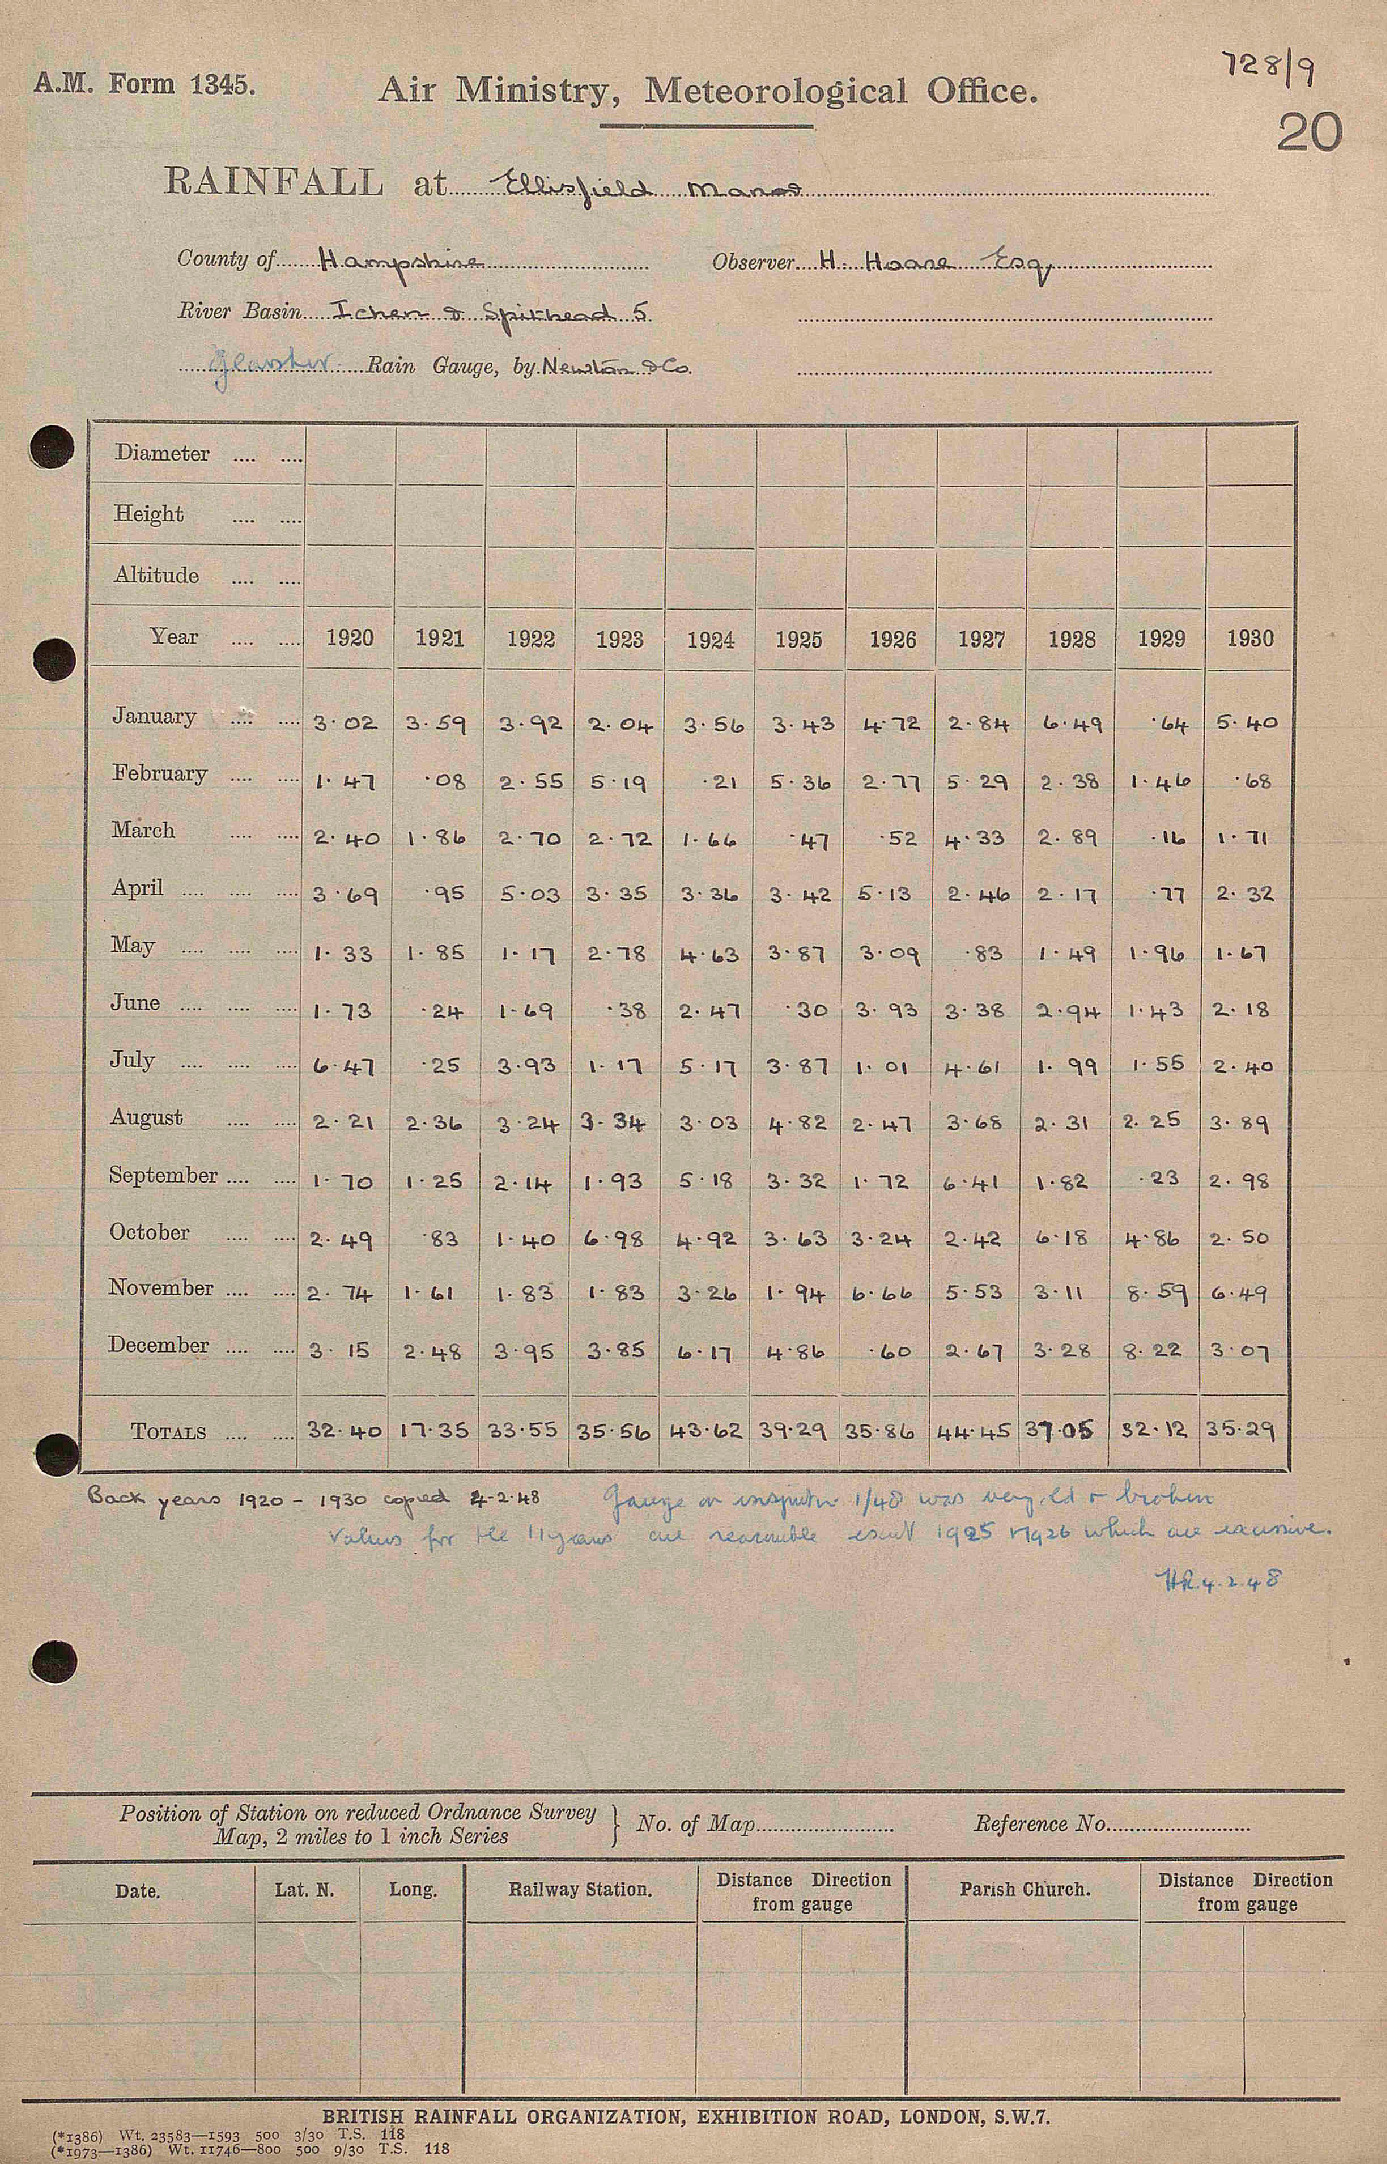 728/9
A.M. Form 1345. Air Ministry, Meteorological Office.
20
RAINFALL at Ellisfield Manor
County of Hampshire Observer H. Hoare Esq,
River Basin Ichen & Spithead 5.
Glaisher Rain Gauge, by Newton & Co.
Diameter .... ....
Height .... ....
Altitude .... ....
Year .... .... 1920 1921 1922 1923 1924 1925 1926 1927 1928 1929 1930
January .... .... 3.02 3.59 3.92 2.04 3.56 3.43 4.72 2.84 6.49 .64 5.40
February .... .... 1.47 .08 2.55 5.19 .21 5.36 2.77 5.29 2.38 1.46 .68
March .... .... 2.40 1.86 2.70 2.72 1.66 .47 .52 4.33 2.89 .16 1.71
April .... .... .... 3.69 .95 5.03 3.35 3.36 3.42 5.13 2.46 2.17 .77 2.32
May .... .... .... 1.33 1.85 1.17 2.78 4.63 3.87 3.09 .83 1.49 1.96 1.67
June .... .... .... 1.73 .24 1.69 .38 2.47 .30 3.93 3.38 2.94 1.43 2.18
July .... .... .... 6.47 .25 3.93 1.17 5.17 3.87 1.01 4.61 1.99 1.55 2.40
August .... .... 2.21 2.36 3.24 3.34 3.03 4.82 2.47 3.68 2.31 2.25 3.89
September .... .... 1.70 1.25 2.14 1.93 5.18 3.32 1.72 6.41 1.82 .23 2.98
October .... .... 2.49 .83 1.40 6.98 4.92 3.63 3.24 2.42 6.18 4.86 2.50
November .... .... 2.74 1.61 1.83 1.83 3.26 1.94 6.66 5.53 3.11 8.59 6.49
December .... .... 3.15 2.48 3.95 3.85 6.17 4.86 .60 2.67 3.28 8.22 3.07
TOTALS .... .... 32.40 17.35 33.55 35.56 43.62 39.29 35.86 44.45 37.05 32.12 35.29
Back years 1920 - 1930 copied 4-2-48 Gauge on inspection 1/48 was very old & broken
Values for the 11 years are reasonable except 1925 & 1926 which are excessive.
HR. 4.2.48
Position of Station on reduced Ordnance Survey
Map, 2 miles to 1 inch Series } No. of Map Reference No.
Date. Lat. N. Long. Railway Station. Distance Direction from gauge Parish Church. Distance Direction from gauge
BRITISH RAINFALL ORGANIZATION, EXHIBITION ROAD, LONDON, S.W.7.
(*1386) Wt. 23583—1593 500 3/30 T.S. 118
(*1973—1386) Wt. 11746—800 500 9/30 T.S. 118